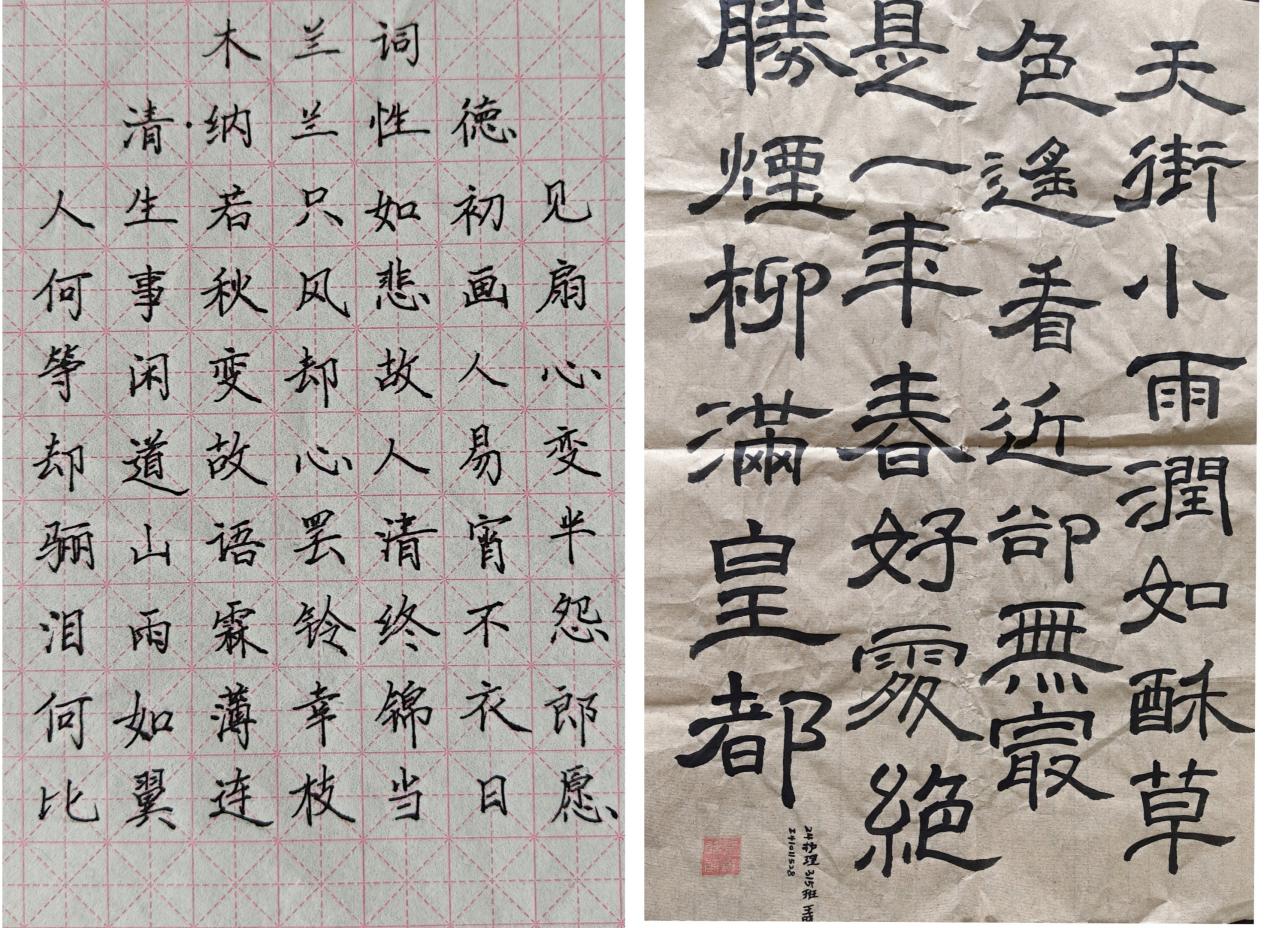 木兰词
清·纳兰性德
人生若只如初见
何事秋风悲画扇
等闲变却故人心
却道故心人易变
骊山语罢清宵半
泪雨霖铃终不怨
何如薄幸锦衣郎
比翼连枝当日愿
天街小雨潤如酥草
色遙看近卻無㝡
是一年春好處絕
勝煙柳滿皇都
24护理 315班 王
241011528